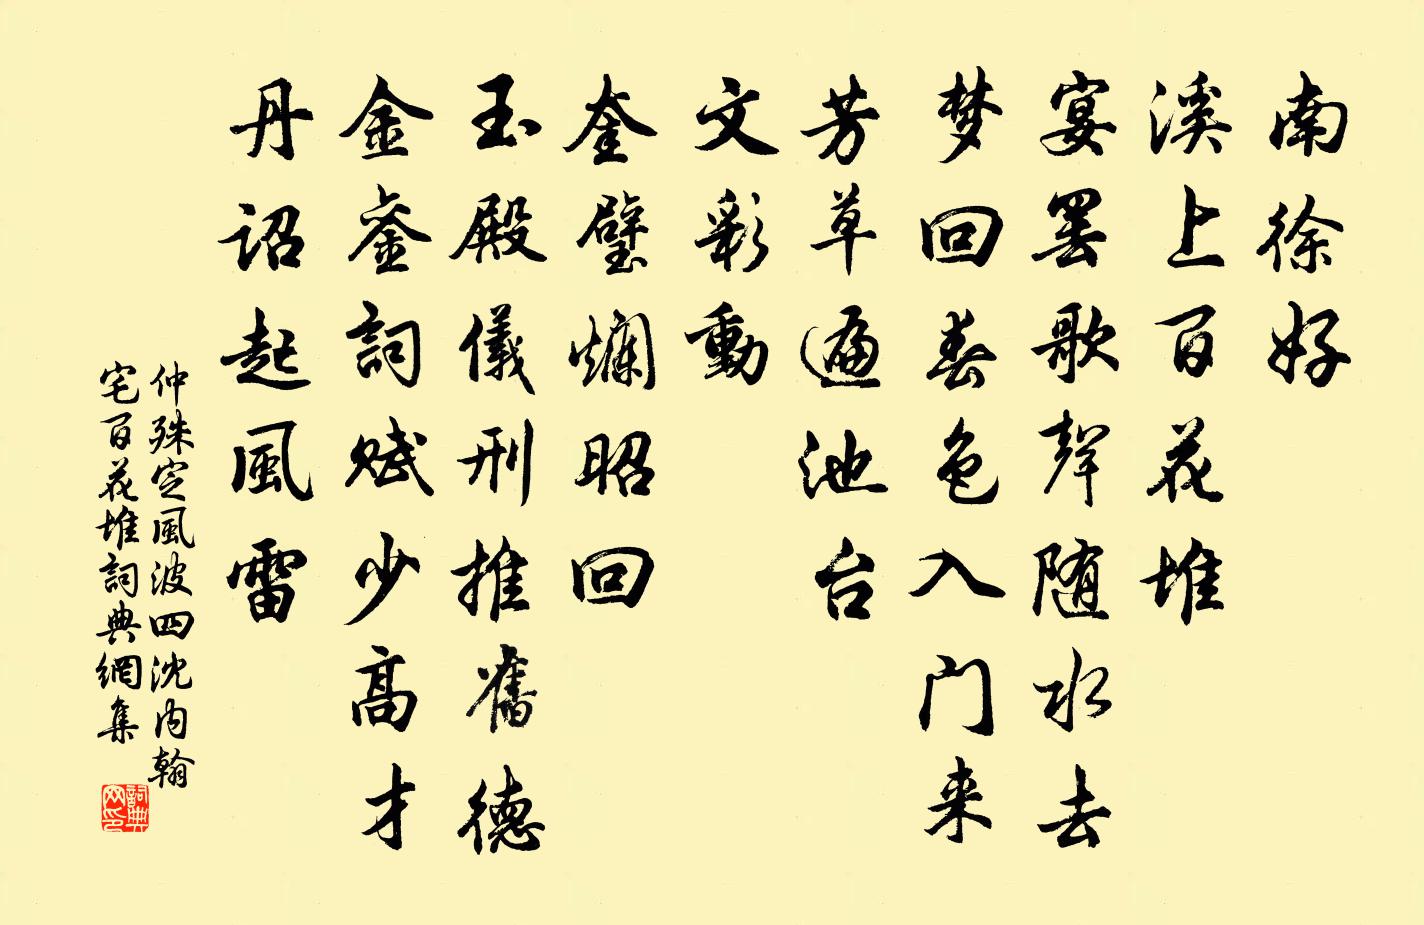 南徐好
溪上百花堆
宴罢歌聲随水去
梦回春色入门来
芳草遍池台
文彩動
奎璧爛昭回
玉殿儀刑推舊德
金鑾詞賦少高才
丹詔起風雷
仲殊定風波四沈内翰
宅百花堆詞典網集
詞典
网印